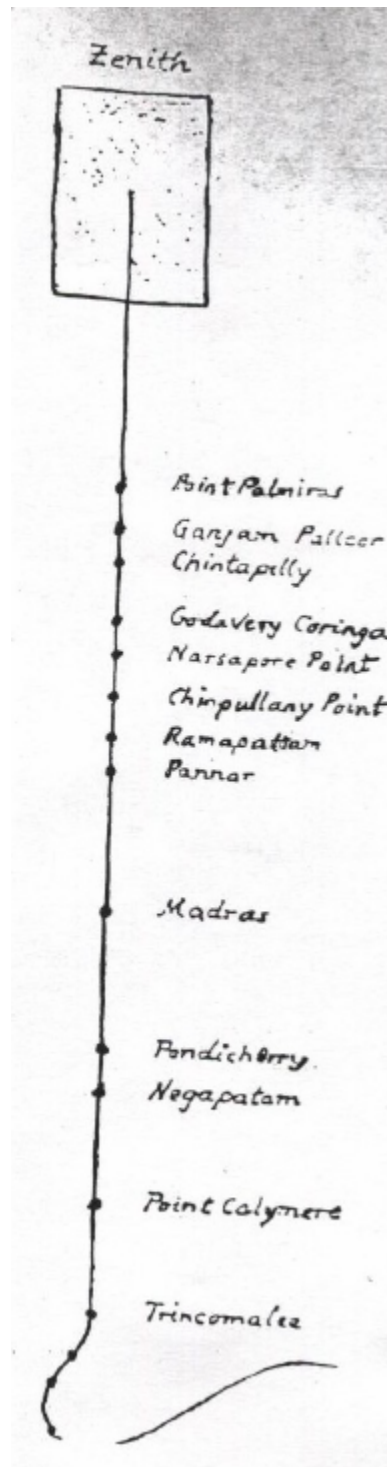 Zenith
Point Palmiras
Ganjam Palleer
Chintapilly
Godavery Coringa
Narsapore Point
Chinpullany Point
Ramapattam
Pannar
Madras
Pondicherry
Negapatam
Point Calymere
Trincomalee